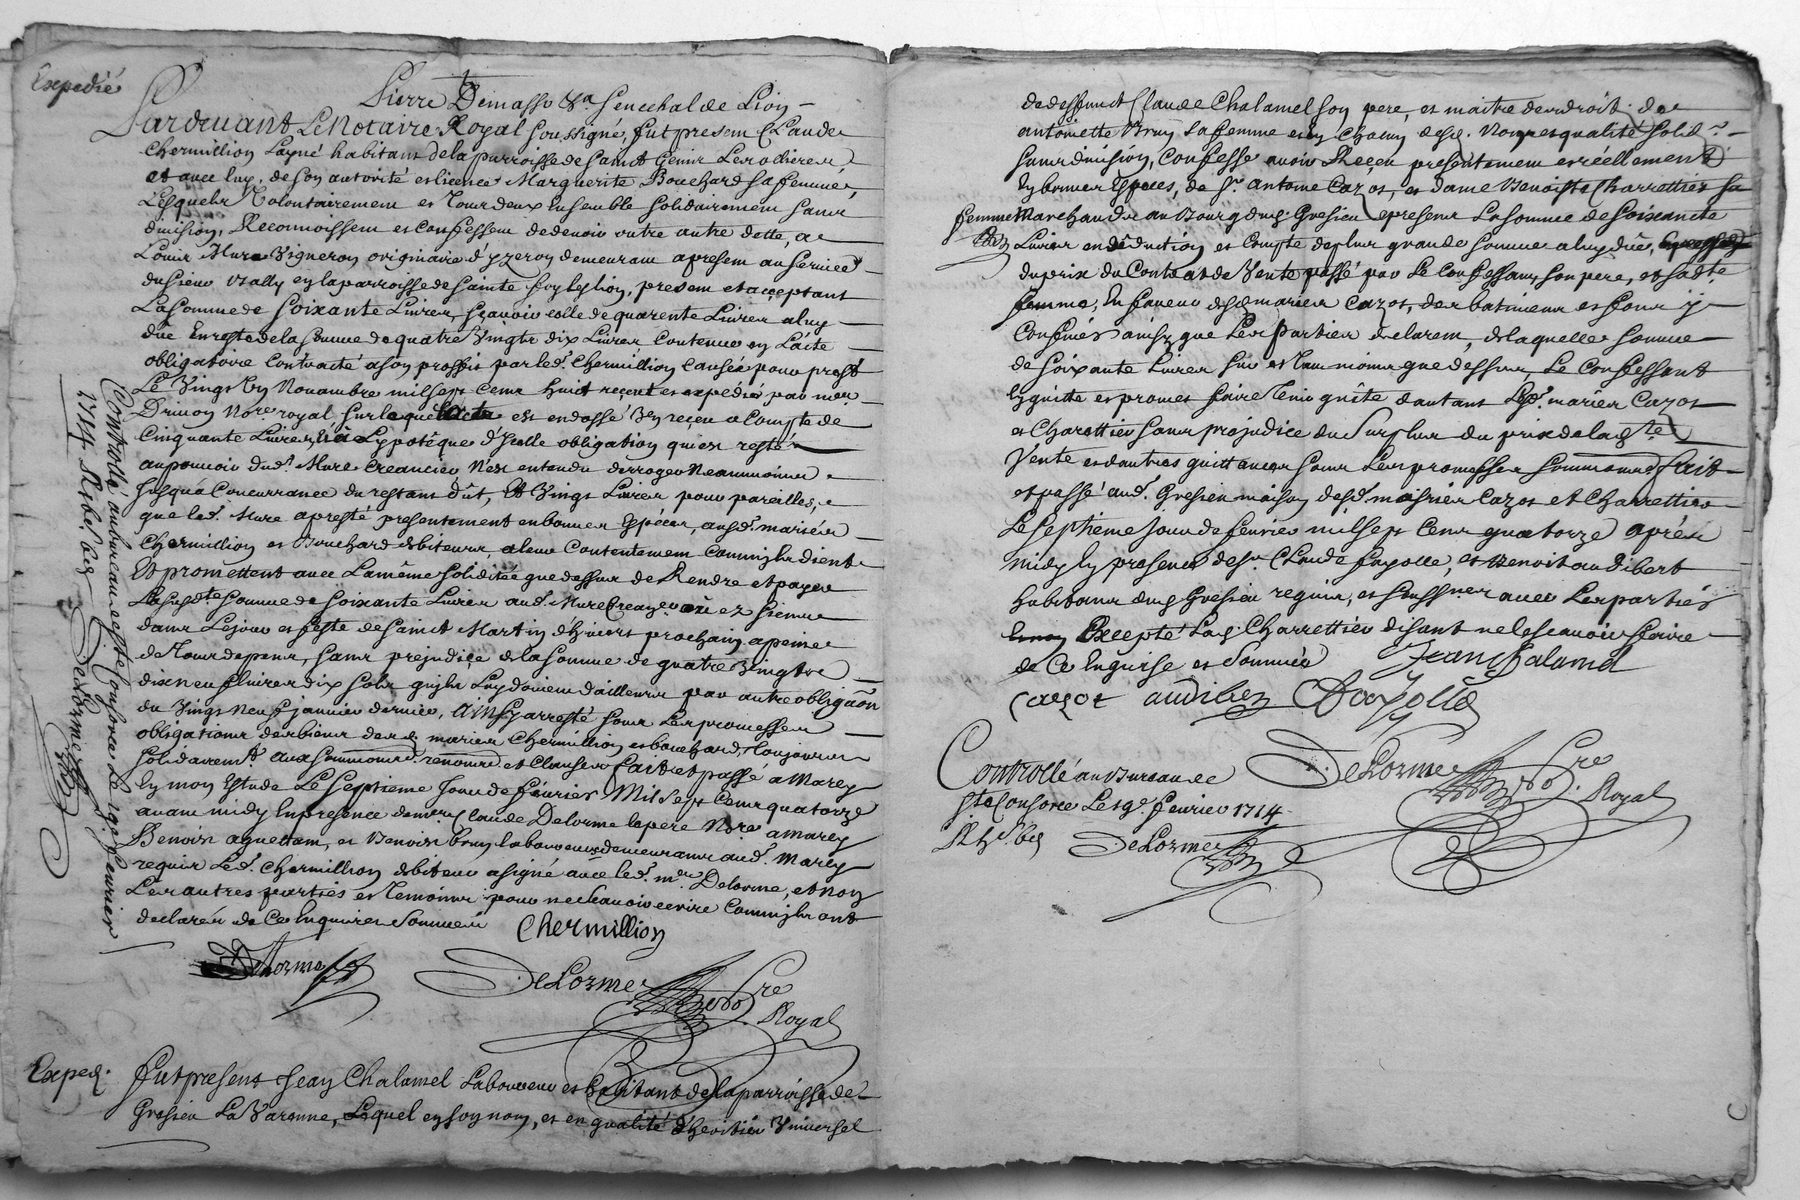 Expedié
Pierre Demasso Sénéchal de Lion
Pardevant Le Notaire Royal soussigné, fut presen Claude
Chermillion Layné habitant de la parroisse de sainct Genis
et avec luy, de son autorité et licence Marguerite Bouchard sa femme,
Lesquels Volontairement et Tous deux Ensemble solidairement sans
division, Reconnoissent et Confessent de devoir outre autre dette, a
Louis Mure Vigneron originaire d'yzeron demeurant apresem au service
du sieur Vally en la parroisse de sainte foy les lion, presem et acceptant
La somme de soixante Livres, sçavoir celle de quarente Livres a luy
düe En reste de la somme de quatre Vingts dix Livres Contenue en L'acte
obligatoire Contracté a son proffit par led. Chermillion Causée pour prest
Le Vingt Un Novambre mil sept cens huit reçeu et expédié par me.
Drivon No.re royal sur lequel acte est endossé Un reçeu a Compte de
Cinquante Livres, a L'ypotèque d'Icelle obligation qui est resté
au pouvoir dud. Mure Creancier N'est entendu derroger Neanmoins
Jusqu'a Concurrance du restant dût, Et Vingt Livres pour pareilles,
que led. Mure a presté presentement en bonnes Espéces, ausd. mariés
Chermillion et Bouchard debiteurs a leur Contentement Comm'ils dient
Et promettent avec La même solidité que dessus de Rendre et payer
La susd.te somme de soixante Livres aud. Mure Creanc.er ou ez siens
dans Le jour et feste de Sainct Martin d'hivert prochain a peine
de Tous depens, sans prejudice de la somme de quatre Vingts
dix neuf livres dix sols qu'ils Luy doivent d'ailleurs par autre obliga͠on
du Vingt Neuf janvier dernier, Ainsy arresté sous Les promesses
obligations des biens desd. mariés Chermillion et bouchard, Toujours
solidairem.t aux soummions, renonc. et Clauses fait et passé a Marcy
En mon Etude Le Septieme Jour de feuvrier Mil Sept Cens quatorze
avant midy En presence de me. Claude Delorme lapere No.re a Marcy
Benoist et Benoist brun laboureurs demeurans aud. Marcy
requis Led. Chermillion debiteur a signé avec led. me. Delorme, et non
Les autres parties et Temoins pour ne sçavoir ecrire Comm'ils ont
declarés de Ce Enquis et Sommés
Chermillion
Delorme
DeLorme No.re Royal
Controllé au bureau de ste Consorce Le 19e feuvrier
1714. Ribl. des
DeLorme
Exped.
Fut present Jean Chalamel Laboureur et habitant de la parroisse de
Gresieu La Varenne, Lequel en son nom, et en qualité d'heritier Universel
de deffunct Claude Chalamel son pere, et maitre des droits de
antoinette Brun sa femme et en Chacun desd. Noms et qualité solid.t
sans division, Confesse avoir Reçeu presentement et réellement
En bonnes Espéces, de Sr. antoine Cazot, et dame Benoiste Charrettier sa
femme Marchands au Bourg dud. Gresieu apresens La somme de soixante
Livres en déduction et Compte de plus grande somme a luy düe,
du prix du Contrat de Vente passé par Le Confessant, son pere, et sad.te
femme, En faveur desd. mariés Cazot, des batimens et fonds y
Confinés ainsy que Les Parties declarent, de laquelle somme
de soixante Livres sur et Tant moins que dessus, Le Confessant
En quitte et promet faire Tenir quite d'autant Lesd. mariés Cazot
et Charettier sans prejudice du Surplus du prix de lad.te
Vente et d'autres quittances sous Les promesses soummions fait
et passé aud. Gresieu maison desd. mariés Cazot et Charrettier
Le septieme jour de fevrier mil sept Cens quatorze aprés
midy En presence de Sr. Claude fayolle, et Benoit audibert
habitans dud. Gresieu requis, et soussnes avec Les parties
Excepté Lad. Charrettier disant ne le sçavoir faire
de Ce Enquise et Sommée
Jean Chalamel
Cazot audiber Fayolle
Controllé au Bureau de
ste Consorce Le 19e. fevrier 1714.
DeLorme No.re Royal
DeLorme